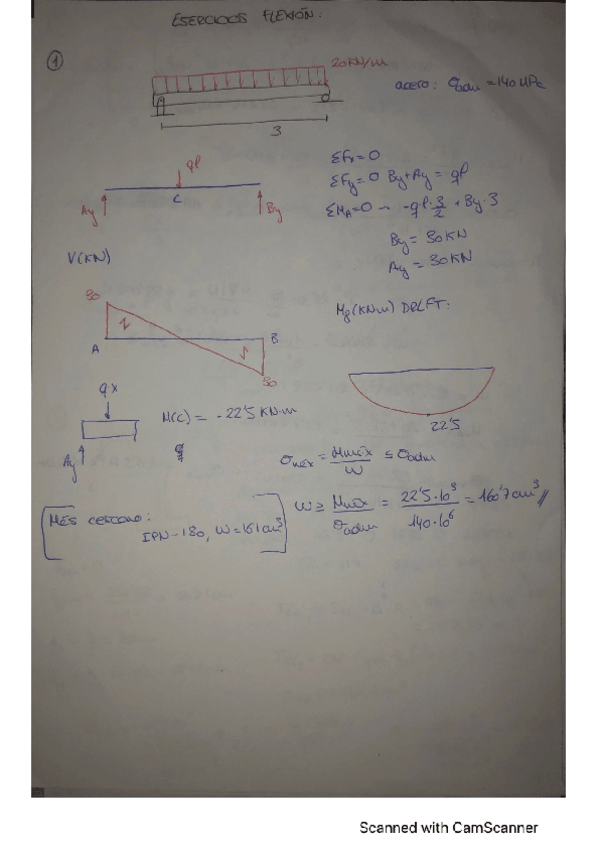 EJERCICIOS FLEXIÓN:
1
20KN/m
acero: σadm = 140 MPa
3
ql
ΣFx=0
ΣFy=0 By+Ay = ql
ΣMA=0 → -ql·3/2 + By·3
Ay
C
By
By = 30KN
Ay = 30KN
V(KN)
30
A
B
30
Mz(KN·m) DPLFT:
22'5
qx
Ay
M(C) = -22'5 KN·m
σmáx = Mmáx/W ≤ σadm
W ≥ Mmáx/σadm = 22'5·10³/140·10⁶ = 160'7cm³//
MES CERCANO:
IPN-180, W=161cm³
Scanned with CamScanner